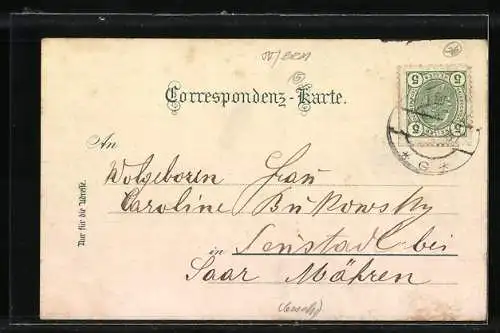 Correspondenz-Karte.
An
Wolgeboren Frau
Caroline Bukowsky
in Neustadl bei
Saar Mähren
Nur für die Adresse.
5 5
5 5
* G *